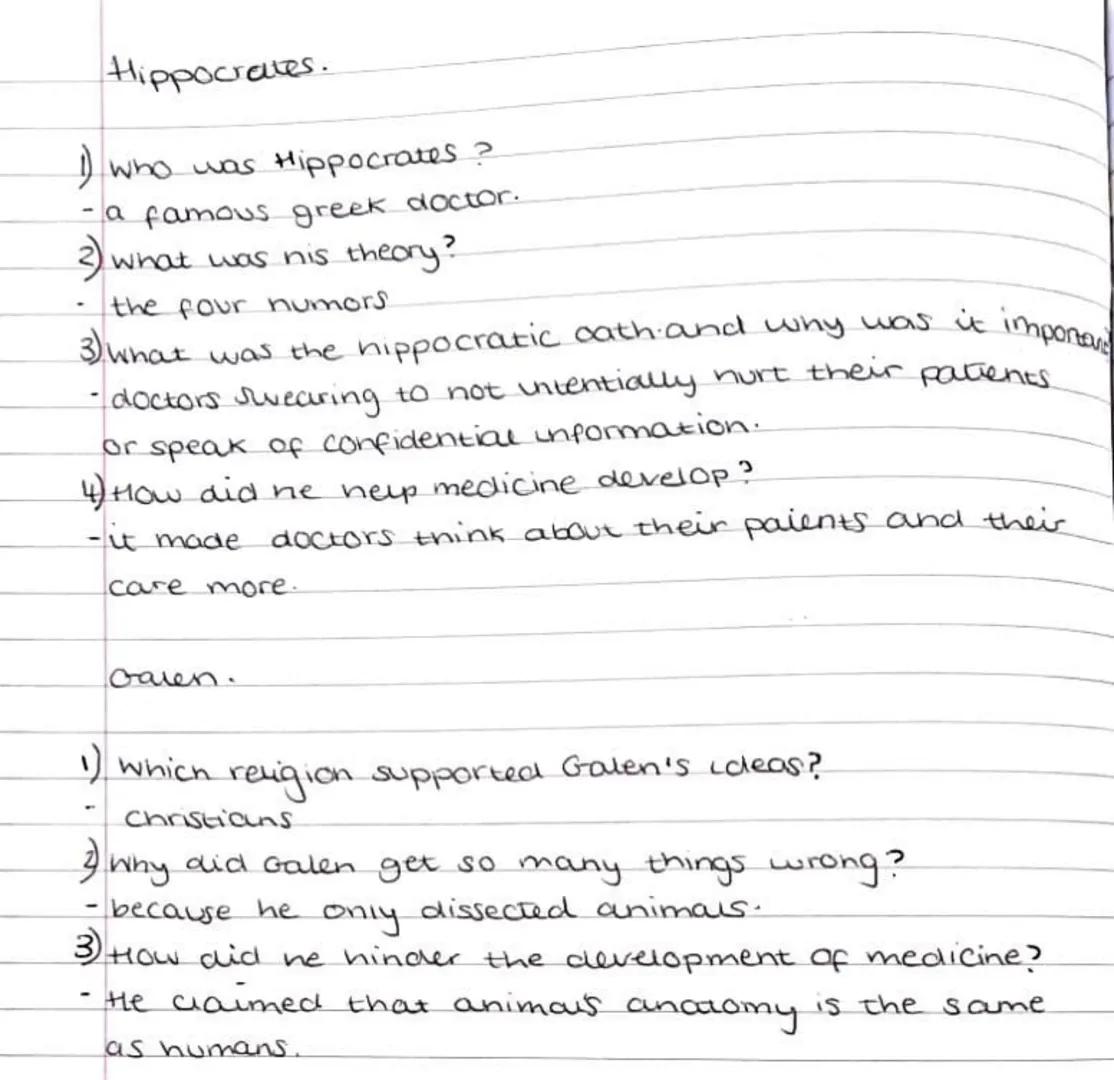 Hippocrates.
1) Who was Hippocrates?
- a famous greek doctor.
2) what was his theory?
- the four humors
3) what was the hippocratic oath and why was it important
- doctors swearing to not intentially hurt their patients
or speak of confidential information.
4) How did he help medicine develop?
- it made doctors think about their paients and their
care more.
Galen.
1) Which religion supported Galen's ideas?
- Christians
2) Why did Galen get so many things wrong?
- because he only dissected animals.
3) How did he hinder the development of medicine?
- He claimed that animals anatomy is the same
as humans.